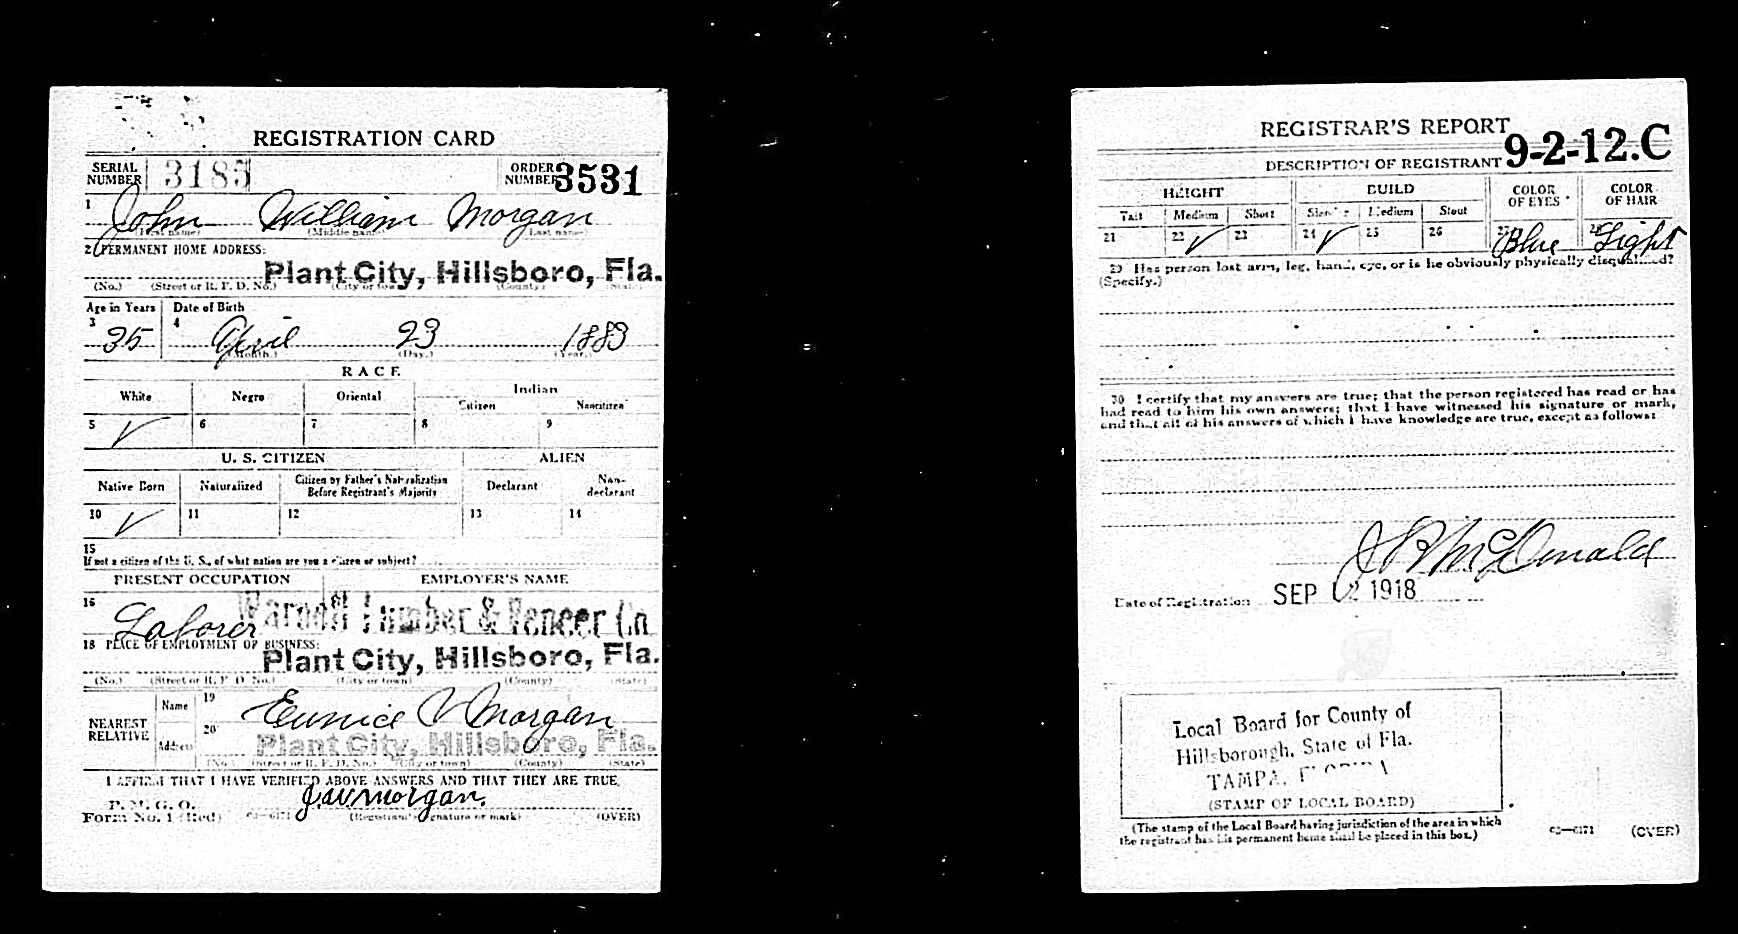 REGISTRATION CARD
SERIAL NUMBER 3185 ORDER NUMBER 3531
1 John William Morgan
(First name) (Middle name) (Last name)
2 PERMANENT HOME ADDRESS:
Plant City, Hillsboro, Fla.
(No.) (Street or R. F. D. No.) (City or town) (County) (State)
Age in Years Date of Birth
3 35 4 April 23 1883
(Month.) (Day.) (Year.)
RACE
White Negro Oriental Indian
Citizen Noncitizen
5 ✓ 6 7 8 9
U. S. CITIZEN ALIEN
Native Born Naturalized Citizen by Father's Naturalization Before Registrant's Majority Declarant Non-declarant
10 ✓ 11 12 13 14
15
If not a citizen of the U. S., of what nation are you a citizen or subject?
PRESENT OCCUPATION EMPLOYER'S NAME
16 Laborer Warnell Lumber & Veneer Co
18 PLACE OF EMPLOYMENT OR BUSINESS:
Plant City, Hillsboro, Fla.
(No.) (Street or R. F. D. No.) (City or town) (County) (State)
NEAREST RELATIVE Name 19 Eunice V Morgan
Address 20 Plant City, Hillsboro, Fla.
(No.) (Street or R. F. D. No.) (City or town) (County) (State)
I AFFIRM THAT I HAVE VERIFIED ABOVE ANSWERS AND THAT THEY ARE TRUE.
P. M. G. O.
Form No. 1 (Red) J. W. Morgan.
(Registrant's signature or mark) (OVER)
REGISTRAR'S REPORT
9-2-12.C
DESCRIPTION OF REGISTRANT
HEIGHT BUILD COLOR OF EYES COLOR OF HAIR
Tall Medium Short Slender Medium Stout
21 22 ✓ 23 24 ✓ 25 26 27 Blue 28 Light
29 Has person lost arm, leg, hand, eye, or is he obviously physically disqualified?
(Specify.)
30 I certify that my answers are true; that the person registered has read or has
had read to him his own answers; that I have witnessed his signature or mark,
and that all of his answers of which I have knowledge are true, except as follows:
McDonald
Date of Registration SEP 12 1918
Local Board for County of
Hillsborough, State of Fla.
TAMPA, FLORIDA
(STAMP OF LOCAL BOARD)
(The stamp of the Local Board having jurisdiction of the area in which
the registrant has his permanent home shall be placed in this box.)
(OVER)